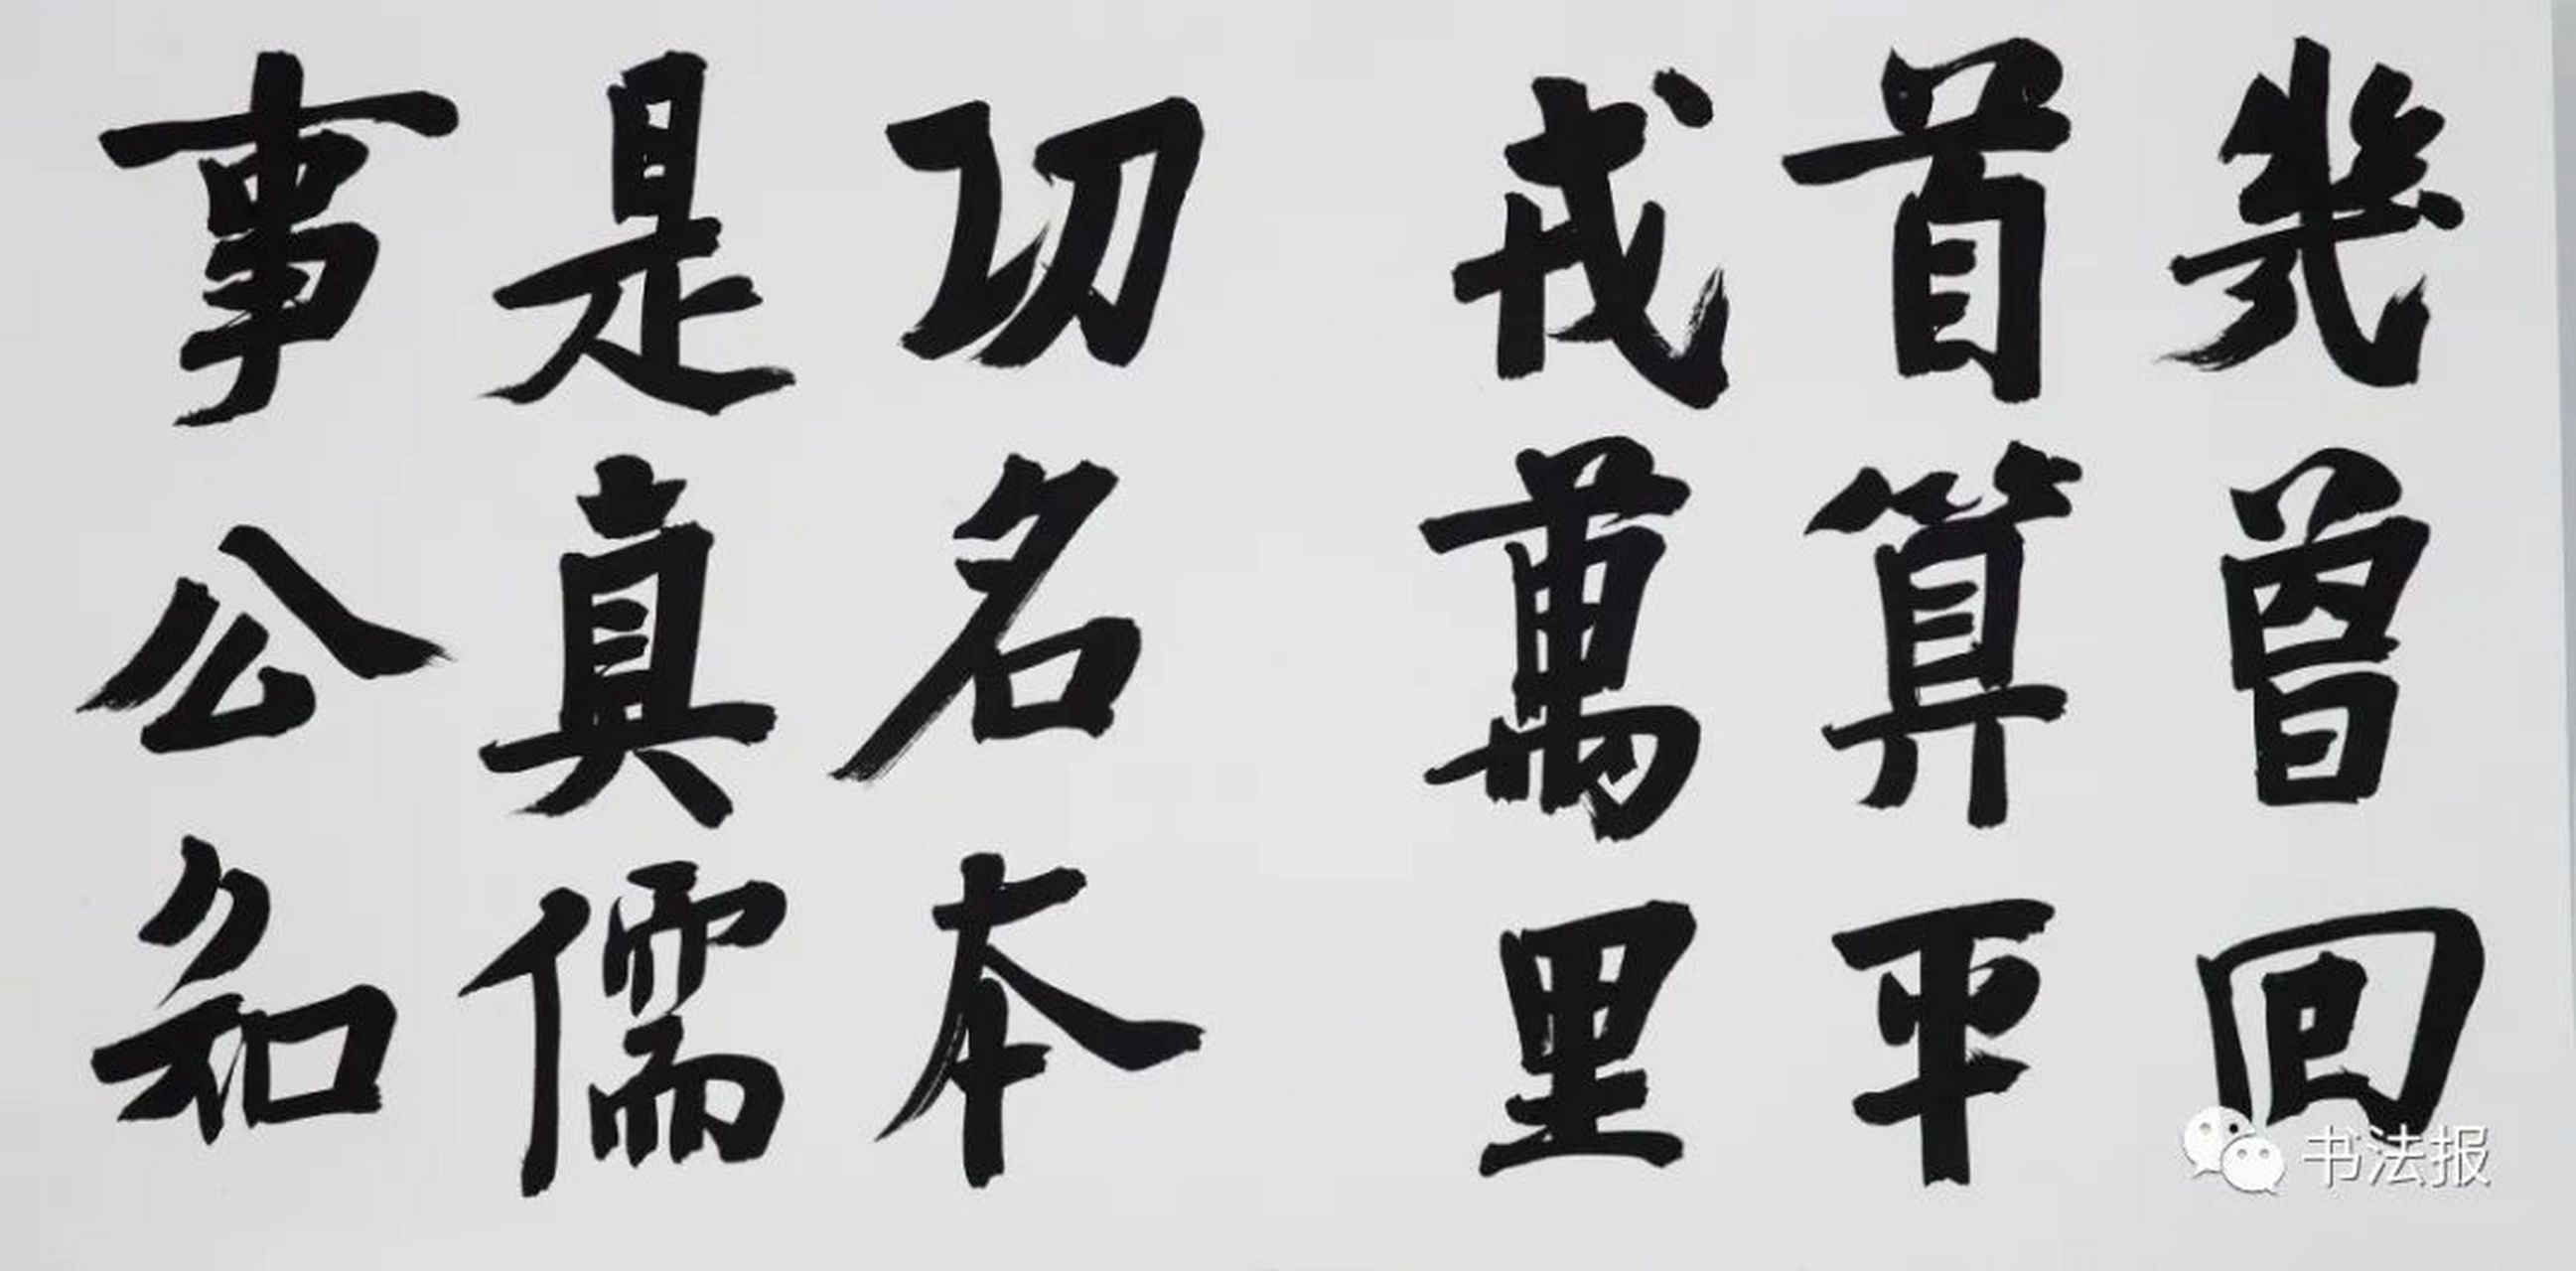 幾曾回
首算平
戎萬里
功名本
是真儒
事公知
书法报